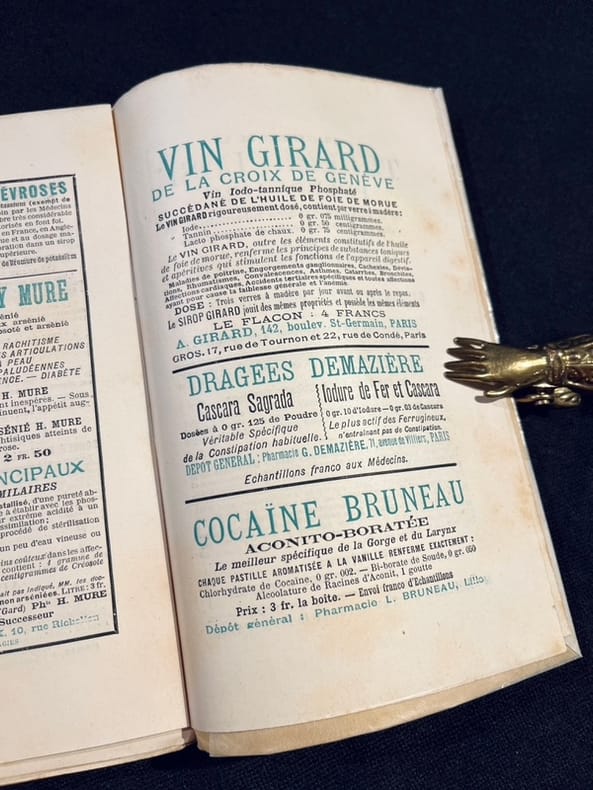 ÉVROSES
otassium (exempt de
oin par les Médecins
bre très considérable
torisés en font foi.
en France, en Angle-
ue et au dosage ma-
oration dans un sirop
supérieure.
de Bromure de potassium
Y MURE
arsénié
osoté et arsénié
RACHITISME
S ARTICULATIONS
A PEAU
PALUDÉENNES
ENCE. — DIABÈTE
H. MURE
nt inespérés. — Sous
inuent, l'appétit aug-
SÉNIÉ H. MURE
htisiques atteints de
rose.
2 FR. 50
NCIPAUX
MILAIRES
stallisé, d'une pureté ab-
e à établir avec les phos-
ur extrême acidité à un
ssimilation;
procédé de stérilisation
un peu d'eau vineuse ou
ins coûteux dans les affec-
contient : 4 gramme de
centigrammes de Créosote
ait pas indiqué, MM. les doc-
non arséniées. LITRE: 3 fr.
(Gard) Phⁿ H. MURE
Successeur
X. 10, rue Richelieu
VIN GIRARD
DE LA CROIX DE GENÈVE
Vin Iodo-tannique Phosphaté
SUCCÉDANÉ DE L'HUILE DE FOIE DE MORUE
Le VIN GIRARD rigoureusement dosé, contient par verre à madère:
Iode.................... 0 gr. 075 milligrammes.
Tannin.................... 0 gr. 50 centigrammes.
Lacto phosphate de chaux. 0 gr. 75 centigrammes.
Le VIN GIRARD, outre les éléments constitutifs de l'huile
de foie de morue, renferme les principes de substances toniques
et apéritives qui stimulent les fonctions de l'appareil digestif.
Maladies de poitrine, Engorgements ganglionnaires, Cachexies, Dévia-
tions, Rhumatismes, Convalescences, Asthmes, Catarrhes, Bronchites,
Affections cardiaques, Accidents tertiaires spécifiques et toutes affections
ayant pour cause la faiblesse générale et l'anémie.
DOSE : Trois verres à madère par jour avant ou après le repas.
Le SIROP GIRARD jouit des mêmes propriétés et possède les mêmes éléments
LE FLACON : 4 FRANCS
A. GIRARD, 142, boulev. St-Germain, PARIS
GROS. 17, rue de Tournon et 22, rue de Condé, Paris
DRAGEES DEMAZIÈRE
Cascara Sagrada
Dosées à 0 gr. 125 de Poudre
Véritable Spécifique
de la Constipation habituelle.
Iodure de Fer et Cascara
0 gr. 10 d'Iodure — 0 gr. 03 de Cascara
Le plus actif des Ferrugineux,
n'entraînant pas de Constipation.
DÉPOT GÉNÉRAL : Pharmacie G. DEMAZIÈRE, 71, avenue de Villiers, PARIS
Echantillons franco aux Médecins.
COCAÏNE BRUNEAU
ACONITO-BORATÉE
Le meilleur spécifique de la Gorge et du Larynx
CHAQUE PASTILLE AROMATISÉE A LA VANILLE RENFERME EXACTEMENT :
Chlorhydrate de Cocaïne, 0 gr. 002. — Bi-borate de Soude, 0 gr. 050
Alcoolature de Racines d'Aconit, 1 goutte
Prix : 3 fr. la boîte. — Envoi franco d'Échantillons
Dépôt général : Pharmacie L. BRUNEAU, Lille